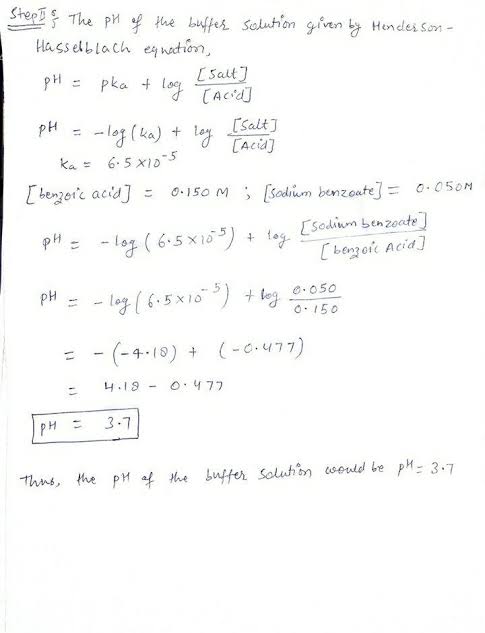 Step II : The pH of the buffer solution given by Henderson-
Hasselblach equation,
pH = pka + log [Salt]/[Acid]
pH = -log(ka) + log [Salt]/[Acid]
ka = 6.5 x10^-5
[benzoic acid] = 0.150 M ; [sodium benzoate] = 0.050M
pH = -log (6.5 x10^-5) + log [Sodium benzoate]/[benzoic Acid]
pH = -log(6.5 x10^-5) + log 0.050/0.150
= -(-4.18) + (-0.477)
= 4.18 - 0.477
pH = 3.7
Thus, the pH of the buffer solution would be pH = 3.7